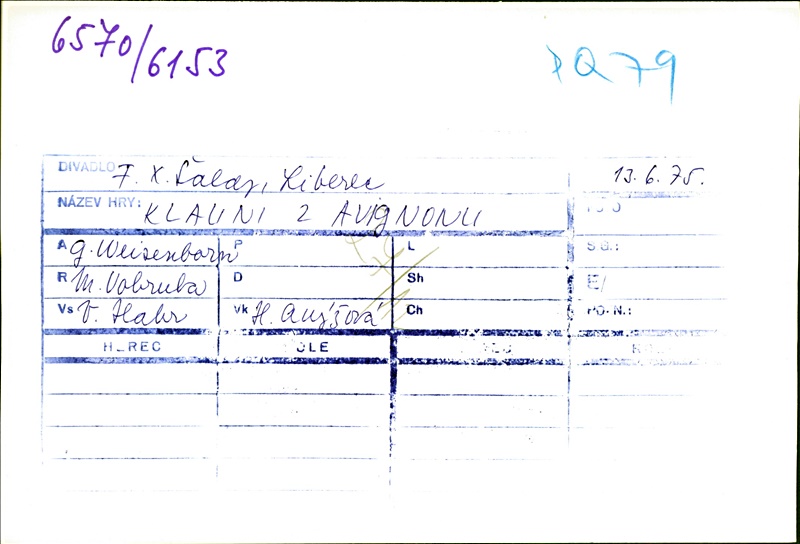 6570/6153
PQ79
DIVADLO F. X. Šaldy, Liberec 13.6.75.
NÁZEV HRY: KLAUNI Z AVIGNONU
A G. Weisenborn P L SG.:
R M. Vobruba D Sh E/
Vs V. Habr Vk H. Anýžová Ch PO. N.:
HEREC